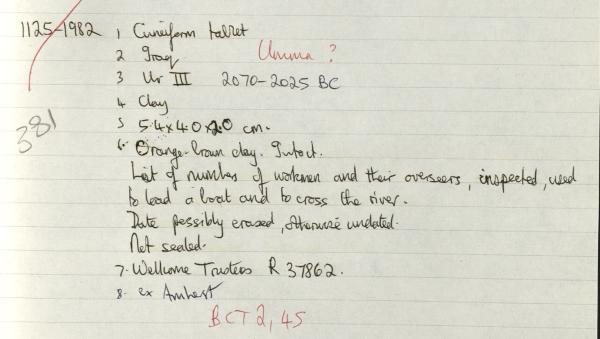 1125-1982 1 Cuneiform tablet
2 Iraq Umma ?
3 Ur III 2070-2025 BC
381
4 Clay
5 5.4x4.0x2.0 cm.
6. Orange-brown clay. Intact.
List of number of workmen and their overseers, inspected, used
to load a boat and to cross the river.
Date possibly erased, otherwise undated.
Not sealed.
7. Wellcome Trustees R 37862.
8. ex Amherst
BCT 2, 45